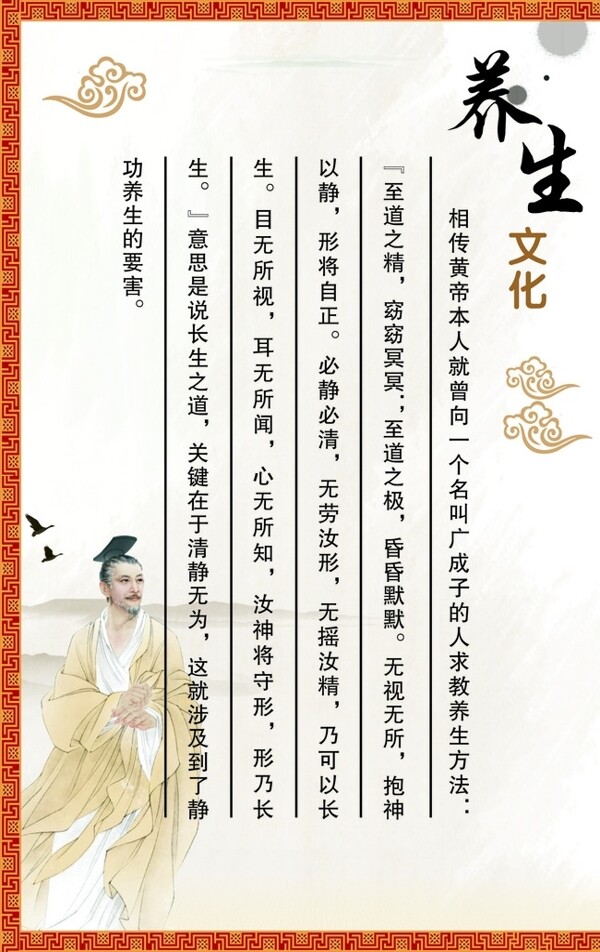 养生
文化
相传黄帝本人就曾向一个名叫广成子的人求教养生方法：
『至道之精，窈窈冥冥：，至道之极，昏昏默默。无视无所，抱神
以静，形将自正。必静必清，无劳汝形，无摇汝精，乃可以长
生。目无所视，耳无所闻，心无所知，汝神将守形，形乃长
生。』意思是说长生之道，关键在于清静无为，这就涉及到了静
功养生的要害。